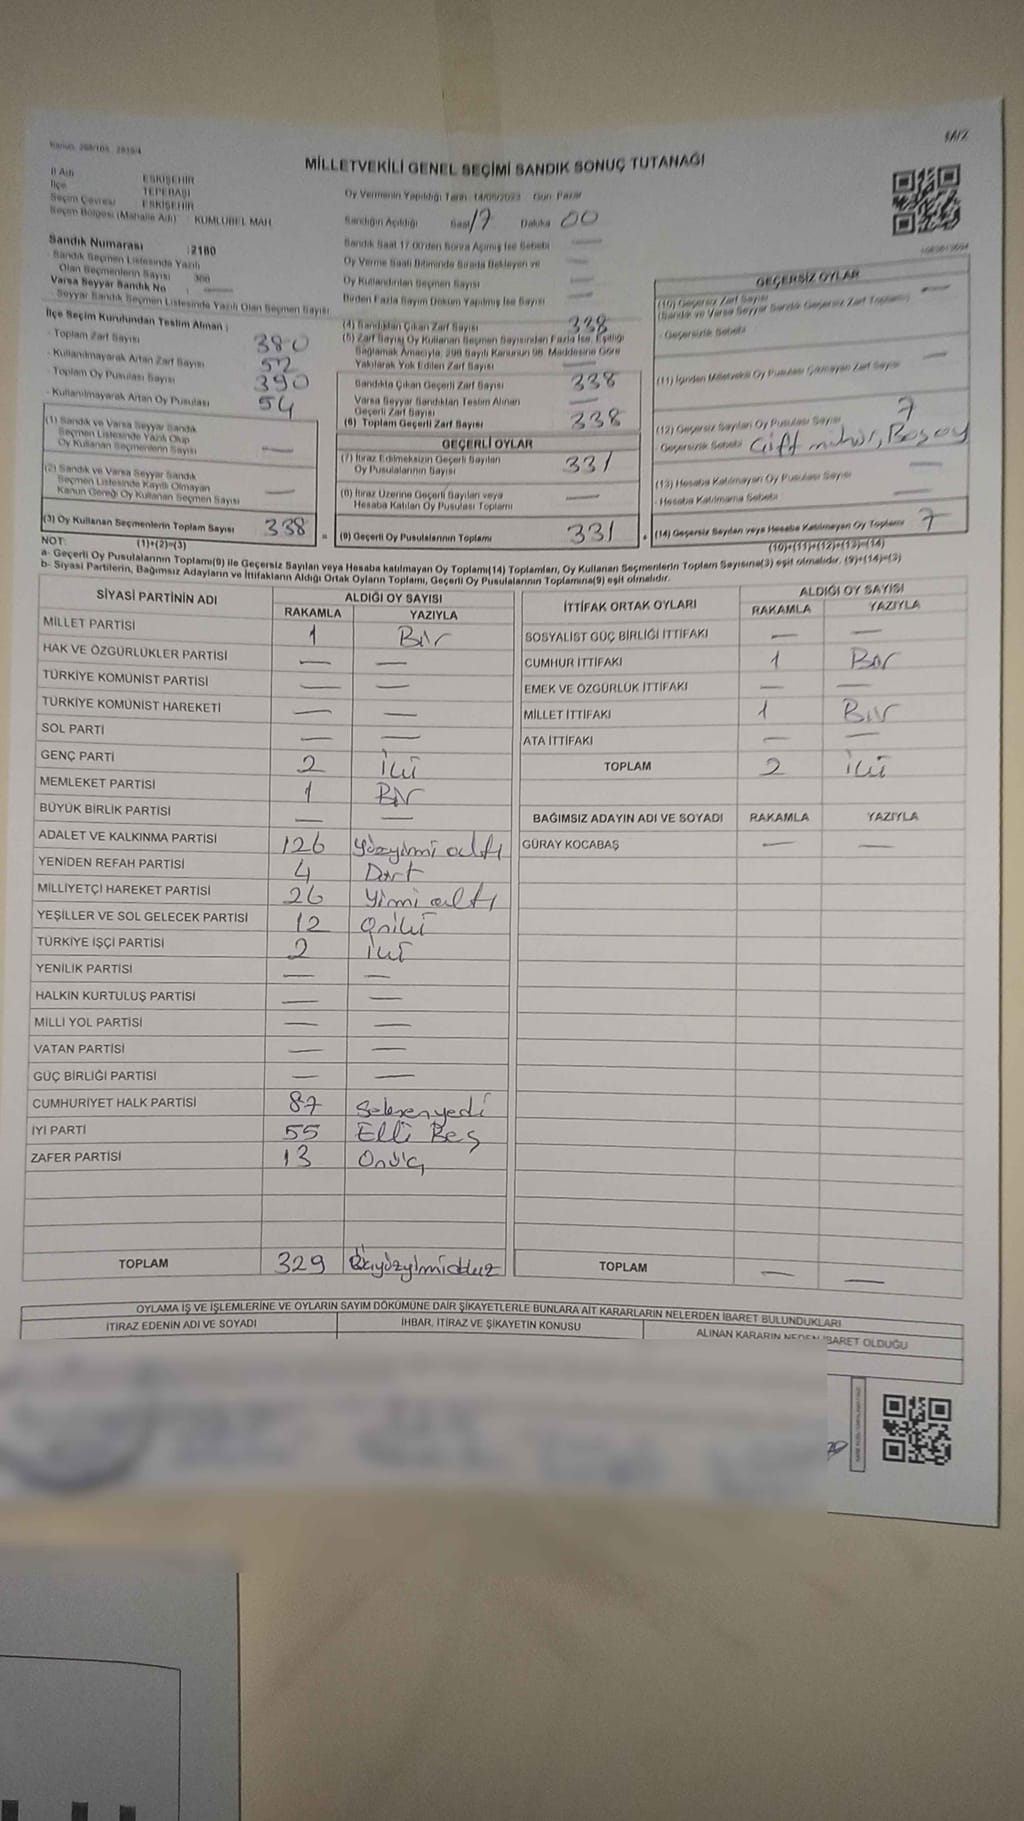 MİLLETVEKİLİ GENEL SEÇİMİ SANDIK SONUÇ TUTANAĞI
İl Adı : ESKİŞEHİR
İlçe : TEPEBAŞI
Seçim Çevresi : ESKİŞEHİR
Seçim Bölgesi (Mahalle Adı) : KUMLUBEL MAH
Oy Vermenin Yapıldığı Tarih: 14/05/2023 Gün: Pazar
Sandığın Açıldığı Saat 17 Dakika 00
Sandık Saat 17:00'den Sonra Açılmış İse Sebebi —
Oy Verme Saati Bitiminde Sırada Bekleyen ve
Oy Kullandırılan Seçmen Sayısı —
Birden Fazla Sayım Döküm Yapılmış İse Sayısı —
Sandık Numarası : 2160
- Sandık Seçmen Listesinde Yazılı
Olan Seçmenlerin Sayısı :
Varsa Seyyar Sandık No : —
- Seyyar Sandık Seçmen Listesinde Yazılı Olan Seçmen Sayısı
İlçe Seçim Kurulundan Teslim Alınan :
- Toplam Zarf Sayısı 380
- Kullanılmayarak Artan Zarf Sayısı 52
- Toplam Oy Pusulası Sayısı 390
- Kullanılmayarak Artan Oy Pusulası 54
(1) Sandık ve Varsa Seyyar Sandık
Seçmen Listesinde Yazılı Olup
Oy Kullanan Seçmenlerin Sayısı —
(2) Sandık ve Varsa Seyyar Sandık
Seçmen Listesinde Kayıtlı Olmayan
Kanun Gereği Oy Kullanan Seçmen Sayısı —
(3) Oy Kullanan Seçmenlerin Toplam Sayısı 338
(4) Sandıktan Çıkan Zarf Sayısı 338
(5) Zarf Sayısı Oy Kullanan Seçmen Sayısından Fazla İse, Eşitliği
Sağlamak Amacıyla, 298 Sayılı Kanunun 98. Maddesine Göre
Yakılarak Yok Edilen Zarf Sayısı —
Sandıkta Çıkan Geçerli Zarf Sayısı 338
Varsa Seyyar Sandıktan Teslim Alınan
Geçerli Zarf Sayısı —
(6) Toplam Geçerli Zarf Sayısı 338
GEÇERLİ OYLAR
(7) İtiraz Edilmeksizin Geçerli Sayılan
Oy Pusulalarının Sayısı 331
(8) İtiraz Üzerine Geçerli Sayılan veya
Hesaba Katılan Oy Pusulası Toplamı —
= (9) Geçerli Oy Pusulalarının Toplamı 331
GEÇERSİZ OYLAR
(10) Geçersiz Zarf Sayısı —
(Sandık ve Varsa Seyyar Sandık Geçersiz Zarf Toplamı)
- Geçersizlik Sebebi
(11) İçinden Milletvekili Oy Pusulası Çıkmayan Zarf Sayısı —
(12) Geçersiz Sayılan Oy Pusulası Sayısı 7
- Geçersizlik Sebebi Çift mühür, Boş oy
(13) Hesaba Katılmayan Oy Pusulası Sayısı —
- Hesaba Katılmama Sebebi —
+ (14) Geçersiz Sayılan veya Hesaba Katılmayan Oy Toplamı 7
NOT: (1)+(2)=(3) (10)+(11)+(12)+(13)=(14)
a- Geçerli Oy Pusulaları Toplamı(9) ile Geçersiz Sayılan veya Hesaba katılmayan Oy Toplamı(14) Toplamları, Oy Kullanan Seçmenlerin Toplam Sayısına(3) eşit olmalıdır. (9)+(14)=(3)
b- Siyasi Partilerin, Bağımsız Adayların ve İttifakların Aldığı Ortak Oyların Toplamı, Geçerli Oy Pusulalarının Toplamına(9) eşit olmalıdır.
SİYASİ PARTİNİN ADI ALDIĞI OY SAYISI
RAKAMLA YAZIYLA
MİLLET PARTİSİ 1 Bir
HAK VE ÖZGÜRLÜKLER PARTİSİ — —
TÜRKİYE KOMÜNİST PARTİSİ — —
TÜRKİYE KOMÜNİST HAREKETİ — —
SOL PARTİ — —
GENÇ PARTİ 2 İki
MEMLEKET PARTİSİ 1 Bir
BÜYÜK BİRLİK PARTİSİ — —
ADALET VE KALKINMA PARTİSİ 126 Yüzyirmi altı
YENİDEN REFAH PARTİSİ 4 Dört
MİLLİYETÇİ HAREKET PARTİSİ 26 Yirmi altı
YEŞİLLER VE SOL GELECEK PARTİSİ 12 Oniki
TÜRKİYE İŞÇİ PARTİSİ 2 İki
YENİLİK PARTİSİ — —
HALKIN KURTULUŞ PARTİSİ — —
MİLLİ YOL PARTİSİ — —
VATAN PARTİSİ — —
GÜÇ BİRLİĞİ PARTİSİ — —
CUMHURİYET HALK PARTİSİ 87 Seksenyedi
İYİ PARTİ 55 Elli Beş
ZAFER PARTİSİ 13 Onüç
TOPLAM 329
İTTİFAK ORTAK OYLARI ALDIĞI OY SAYISI
RAKAMLA YAZIYLA
SOSYALİST GÜÇ BİRLİĞİ İTTİFAKI — —
CUMHUR İTTİFAKI 1 Bir
EMEK VE ÖZGÜRLÜK İTTİFAKI — —
MİLLET İTTİFAKI 1 Bir
ATA İTTİFAKI — —
TOPLAM 2 İki
BAĞIMSIZ ADAYIN ADI VE SOYADI RAKAMLA YAZIYLA
GÜRAY KOCABAŞ — —
TOPLAM — —
OYLAMA İŞ VE İŞLEMLERİNE VE OYLARIN SAYIM DÖKÜMÜNE DAİR ŞİKAYETLERLE BUNLARA AİT KARARLARIN NELERDEN İBARET BULUNDUKLARI
İTİRAZ EDENİN ADI VE SOYADI İHBAR, İTİRAZ VE ŞİKAYETİN KONUSU ALINAN KARARIN NEDEN İBARET OLDUĞU